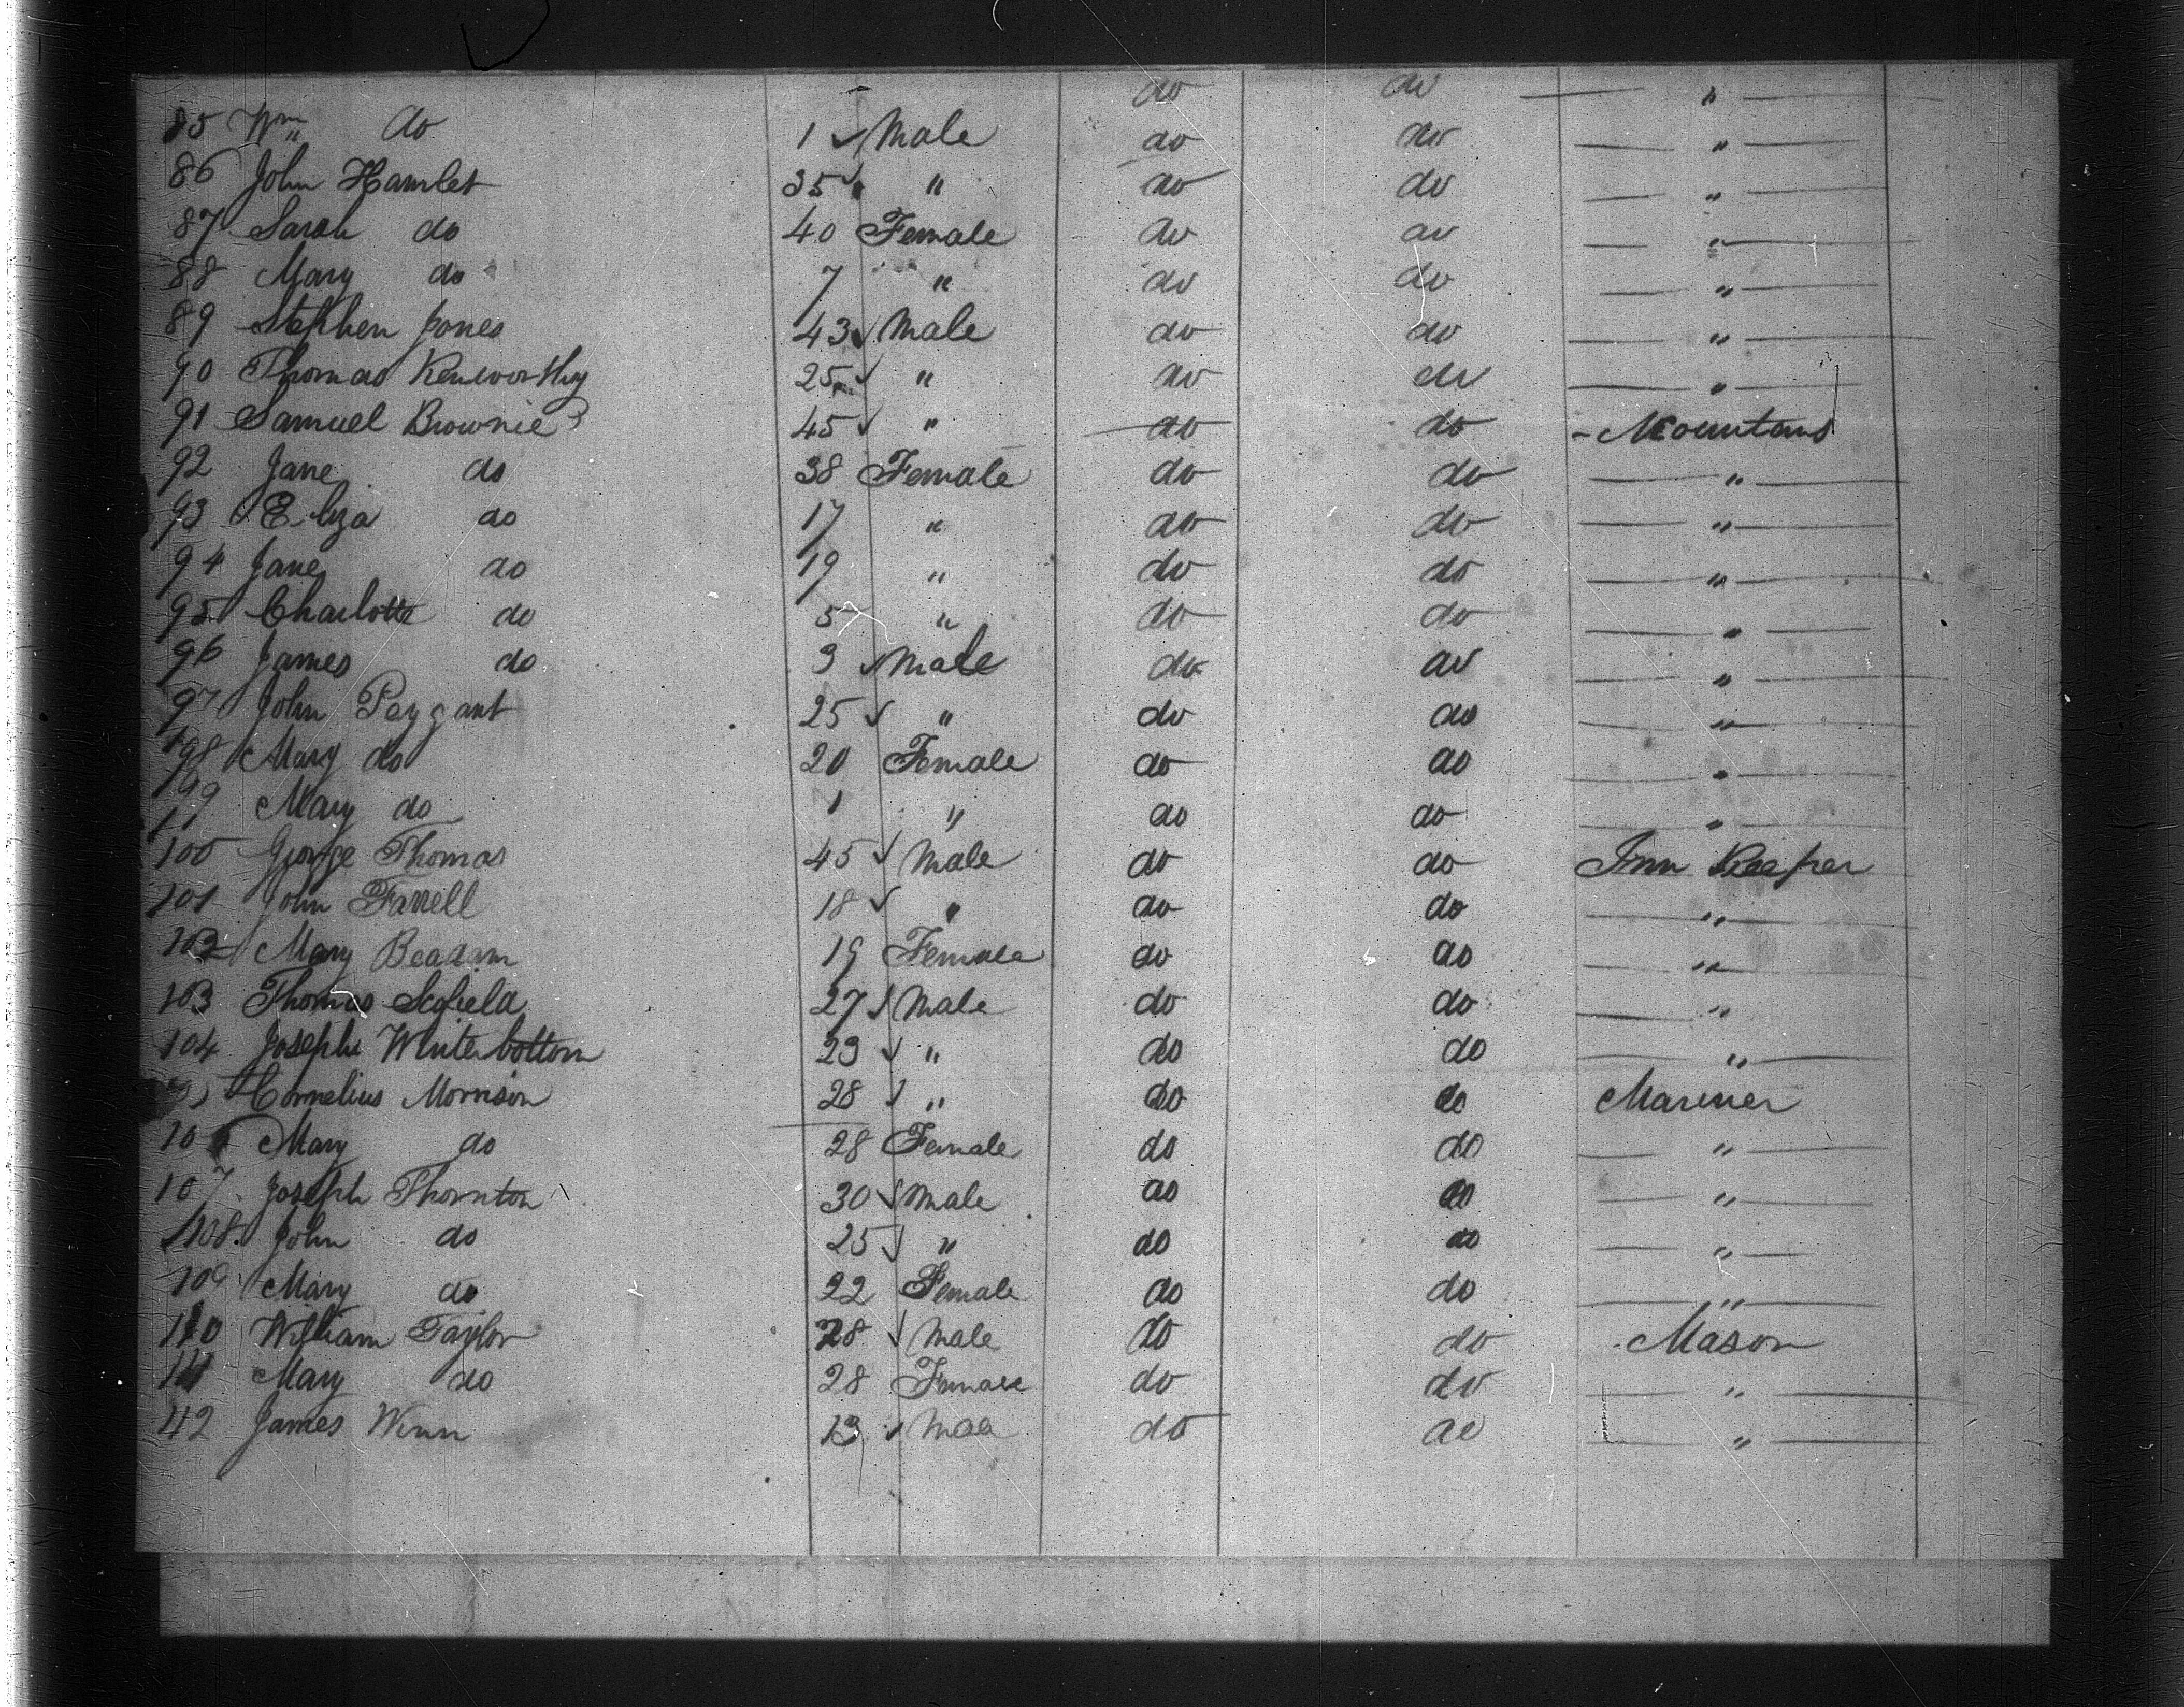 do do "
85 Wm " do 1 ✓ Male do do "
86 John Hamlet 35 ✓ " do do "
87 Sarah do 40 Female do do "
88 Mary do 7 " do do "
89 Stephen Jones 43 ✓ Male do do "
90 Thomas Kenworthy 25 ✓ " do do "
91 Samuel Brownie 45 ✓ " do do
92 Jane do 38 Female do do "
93 Eliza do 17 " do do "
94 Jane do 19 " do do "
95 Charlotte do 5 " do do "
96 James do 3 ✓ Male do do "
97 John 25 ✓ " do do "
98 Mary do 20 Female do do "
99 Mary do 1 " do do "
100 George Thomas 45 ✓ Male do do Inn Keeper
101 John Farrell 18 ✓ " do do "
102 Mary 19 Female do do "
103 Thomas Scofield 27 ✓ Male do do "
104 Joseph Winterbottom 23 ✓ " do do "
Cornelius Morrison 28 ✓ " do do Mariner
106 Mary do 28 Female do do "
107 Joseph Thornton 30 ✓ Male do do "
108 John do 25 ✓ " do do "
109 Mary do 22 Female do do "
110 William Taylor 28 ✓ Male do do Mason
111 Mary do 28 Female do do "
112 James Winn 13 ✓ Male do do "